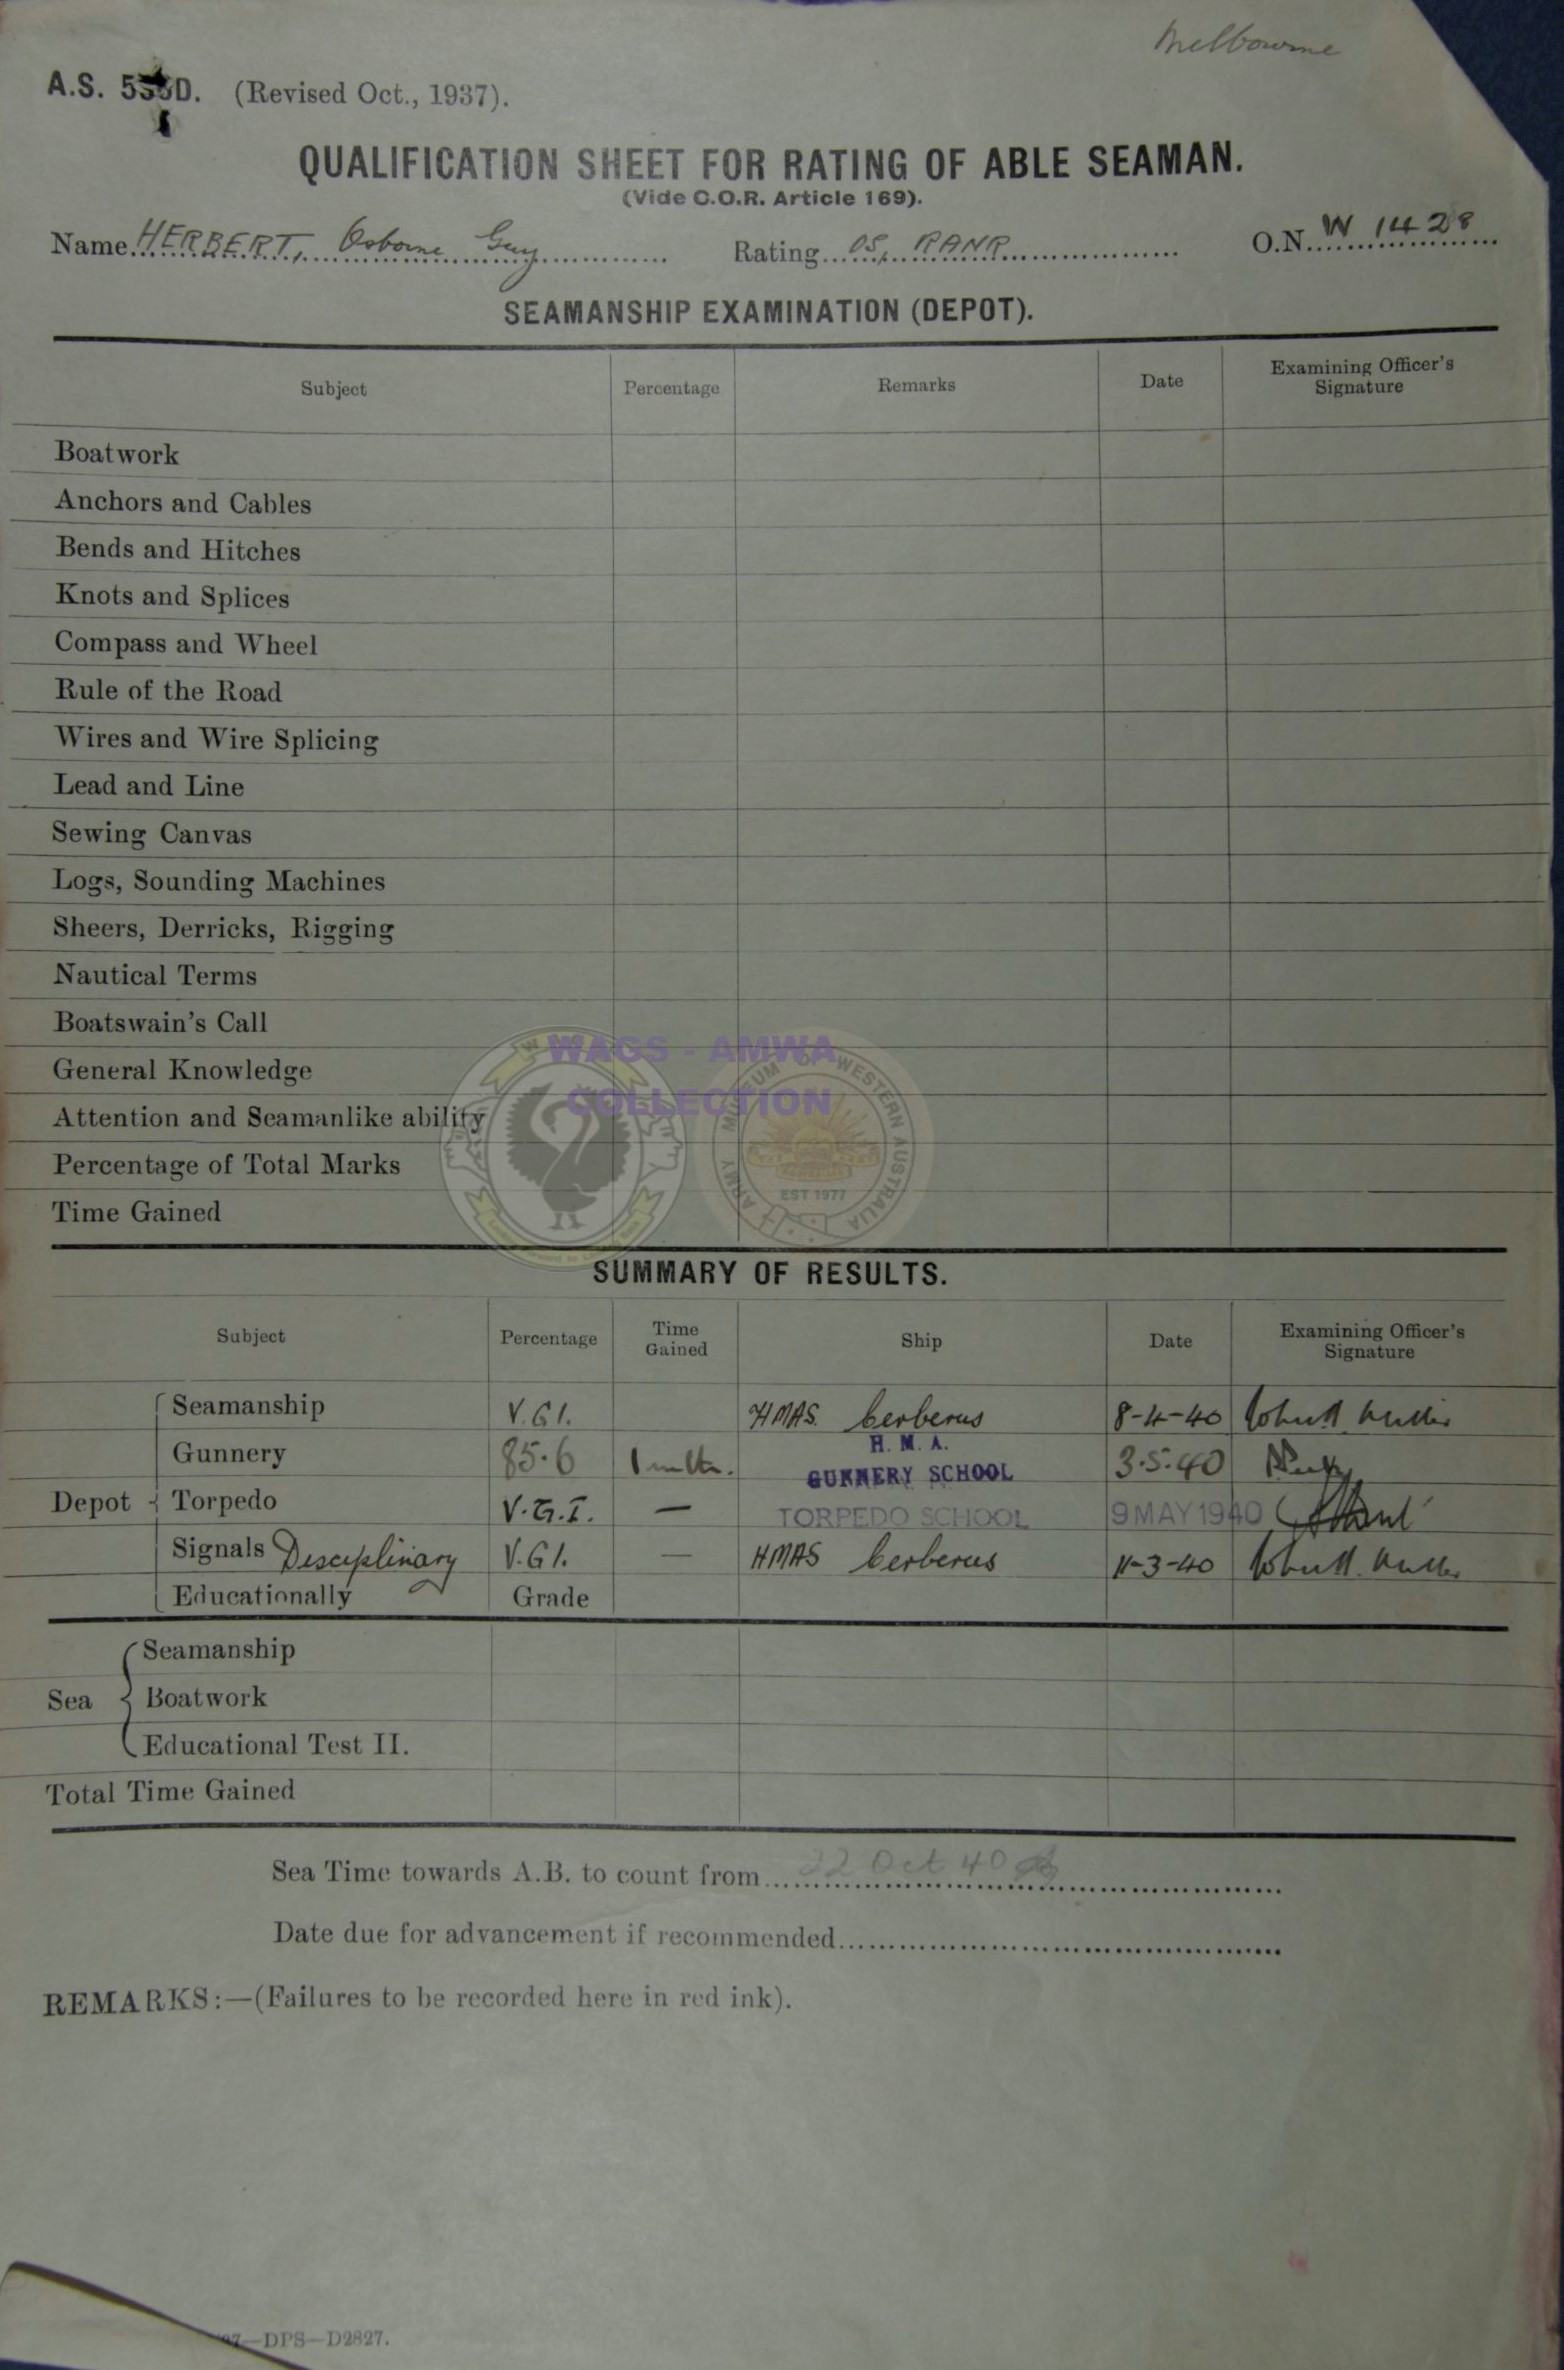 Melbourne
A.S. 5 D. (Revised Oct., 1937).
QUALIFICATION SHEET FOR RATING OF ABLE SEAMAN.
(Vide C.O.R. Article 169).
Name HERBERT, Osborne Guy Rating OS, RANR O.N. W 1428
SEAMANSHIP EXAMINATION (DEPOT).
Subject Percentage Remarks Date Examining Officer's Signature
Boatwork
Anchors and Cables
Bends and Hitches
Knots and Splices
Compass and Wheel
Rule of the Road
Wires and Wire Splicing
Lead and Line
Sewing Canvas
Logs, Sounding Machines
Sheers, Derricks, Rigging
Nautical Terms
Boatswain's Call
WAGS - AMWA
General Knowledge
COLLECTION
ARMY MUSEUM OF WESTERN AUSTRALIA
Attention and Seamanlike ability
Percentage of Total Marks
EST 1977
Time Gained
SUMMARY OF RESULTS.
Subject Percentage Time Gained Ship Date Examining Officer's Signature
Seamanship V.G1. HMAS. Cerberus 8-4-40
Gunnery 85.6 1 mth. H. M. A. GUNNERY SCHOOL 3.5.40
Depot Torpedo V.G.I. — TORPEDO SCHOOL 9 MAY 1940
Signals Disciplinary V.G1. — HMAS Cerberus 11-3-40
Educationally Grade
Seamanship
Sea Boatwork
Educational Test II.
Total Time Gained
Sea Time towards A.B. to count from 22 Oct 40
Date due for advancement if recommended
REMARKS:—(Failures to be recorded here in red ink).
37—DPS—D2827.